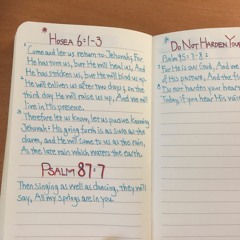 *HOSEA 6:1-3
1 Come and let us return to Jehovah; For
He has torn us, but He will heal us, And
He has stricken us, but He will bind us up.
2 He will enliven us after two days; on the
third day He will raise us up, And we will
live in His presence.
3 Therefore let us know, let us pursue knowing
Jehovah; His going forth is as sure as the
dawn, And He will come to us as the rain,
As the late rain which waters the earth.
PSALM 87:7
Then singing as well as dancing, they will
say, All my springs are in you.
*DO NOT HARDEN YOUR
Psalm 95:7-8:
For He is our God, And we
of His pasture, And the
Do not harden your hear
Today, if you hear His